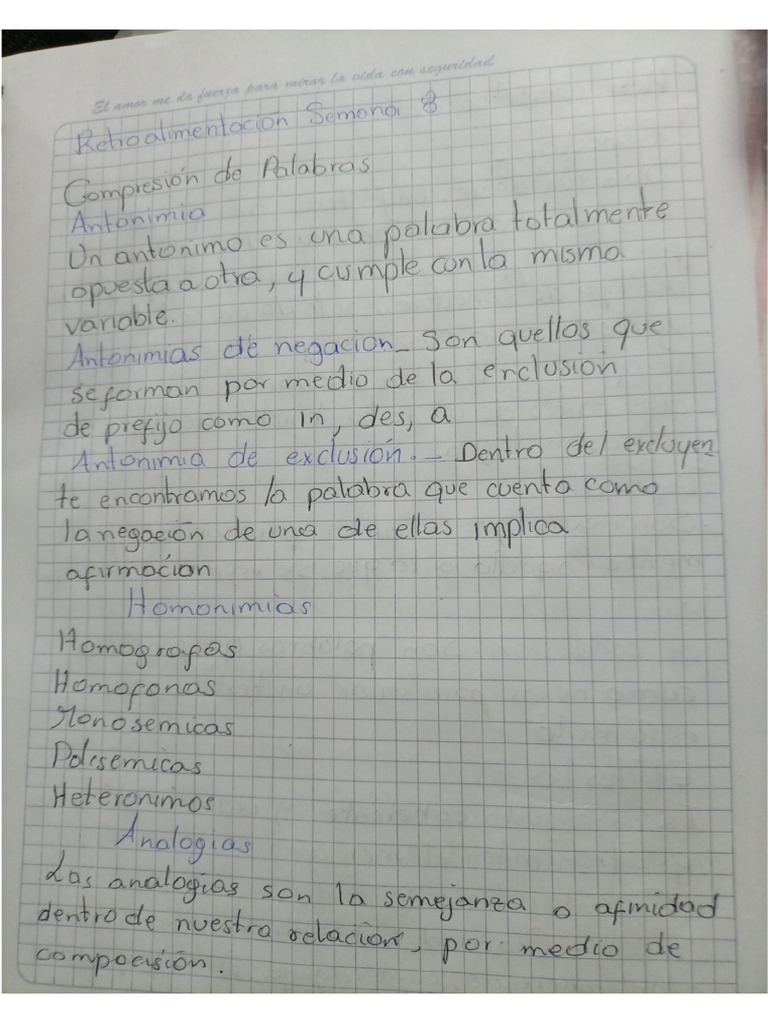 El amor me da fuerza para mirar la vida con seguridad
Retroalimentación Semana 8
Compresión de Palabras
Antonimia
Un antonimo es una palabra totalmente
opuesta a otra, y cumple con la misma
variable.
Antonimias de negacion_ Son quellos que
se forman por medio de la enclusión
de prefijo como in, des, a
Antonimia de exclusión._ Dentro del excluyen
te encontramos la palabra que cuenta como
la negación de una de ellas implica
afirmacion
Homonimias
Homografas
Homofonas
Monosemicas
Polisemicas
Heteronimos
Analogias
Las analogias son la semejanza o afinidad
dentro de nuestra relación, por medio de
compocisión.